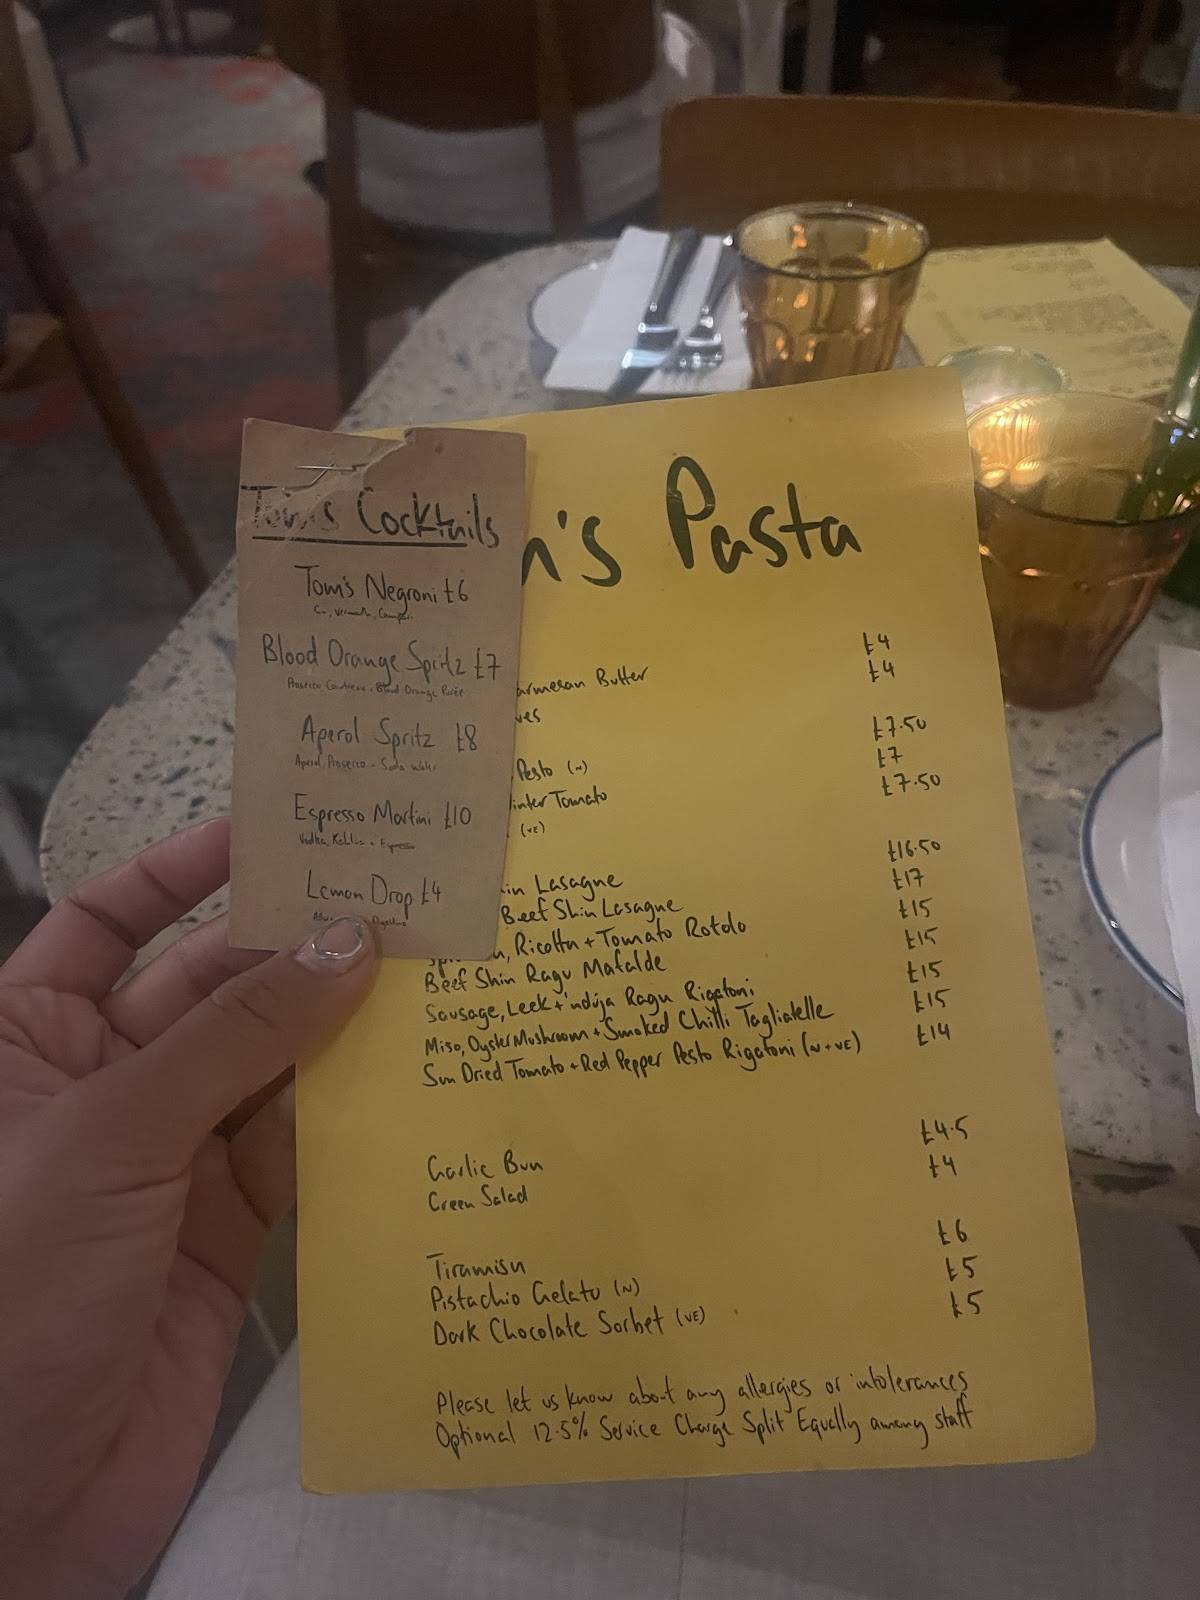 Tom's Cocktails
Tom's Negroni £6
Gin, Vermouth, Campari
Blood Orange Spritz £7
Prosecco Blood Orange Purée
Aperol Spritz £8
Aperol, Prosecco + Soda Water
Espresso Martini £10
Vodka, Kahlua + Espresso
Lemon Drop £4
Digestivo
's Pasta
£4
armesan Butter £4
ves
£7.50
Pesto (N) £7
inter Tomato £7.50
(VE)
in Lasagne £16.50
Beef Shin Lasagne £17
, Ricotta + Tomato Rotolo £15
Beef Shin Ragu Mafalde £15
Sausage, Leek + 'nduja Ragu Rigatoni £15
Miso, Oyster Mushroom + Smoked Chilli Tagliatelle £15
Sun Dried Tomato + Red Pepper Pesto Rigatoni (N + VE) £14
Garlic Bun £4.5
Green Salad £4
Tiramisu £6
Pistachio Gelato (N) £5
Dark Chocolate Sorbet (VE) £5
Please let us know about any allergies or intolerances
Optional 12.5% Service Charge Split Equally among staff